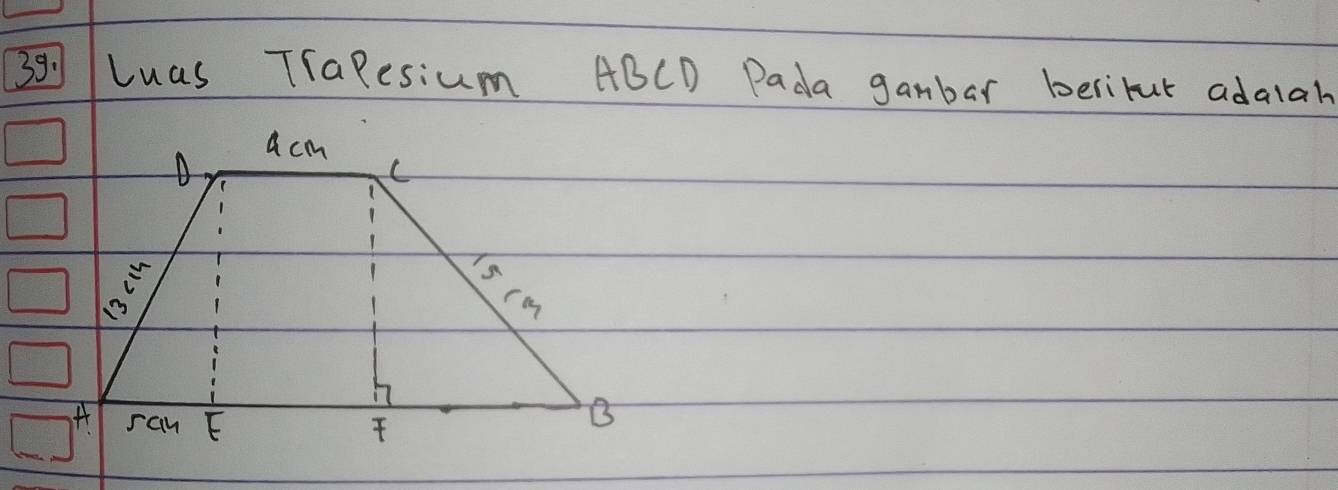 39. Luas Trapesium ABCD Pada gambar berikut adalah
4cm
D C
13 cm
15 cm
A 5cm E F B